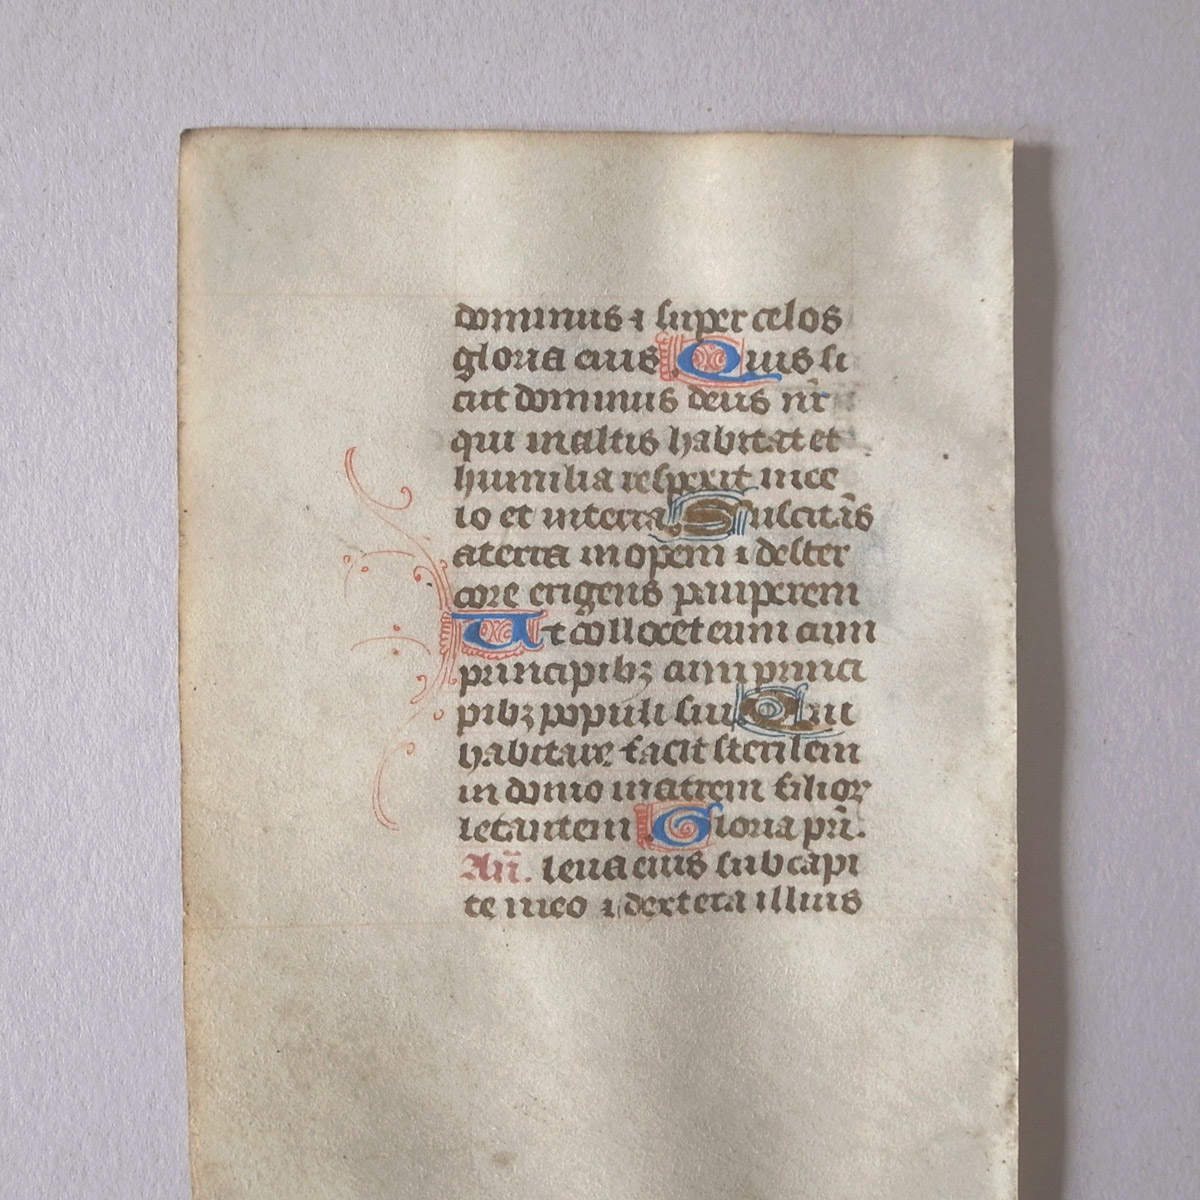 dominus ⁊ super celos
gloria eius Quis si
cut dominus deus nr̄
qui in altis habitat et
humilia respexit in ce
lo et in terra Suscitās
a terra inopem ⁊ de ster
core erigens pauperem
Ut collocet eum cum
principibꝫ cum princi
pibꝫ populi sui Qui
habitare facit sterilem
in domo matrem filioꝝ
letantem Gloria pr̄i.
An̄. leua eius sub capi
te meo ⁊ dextera illius